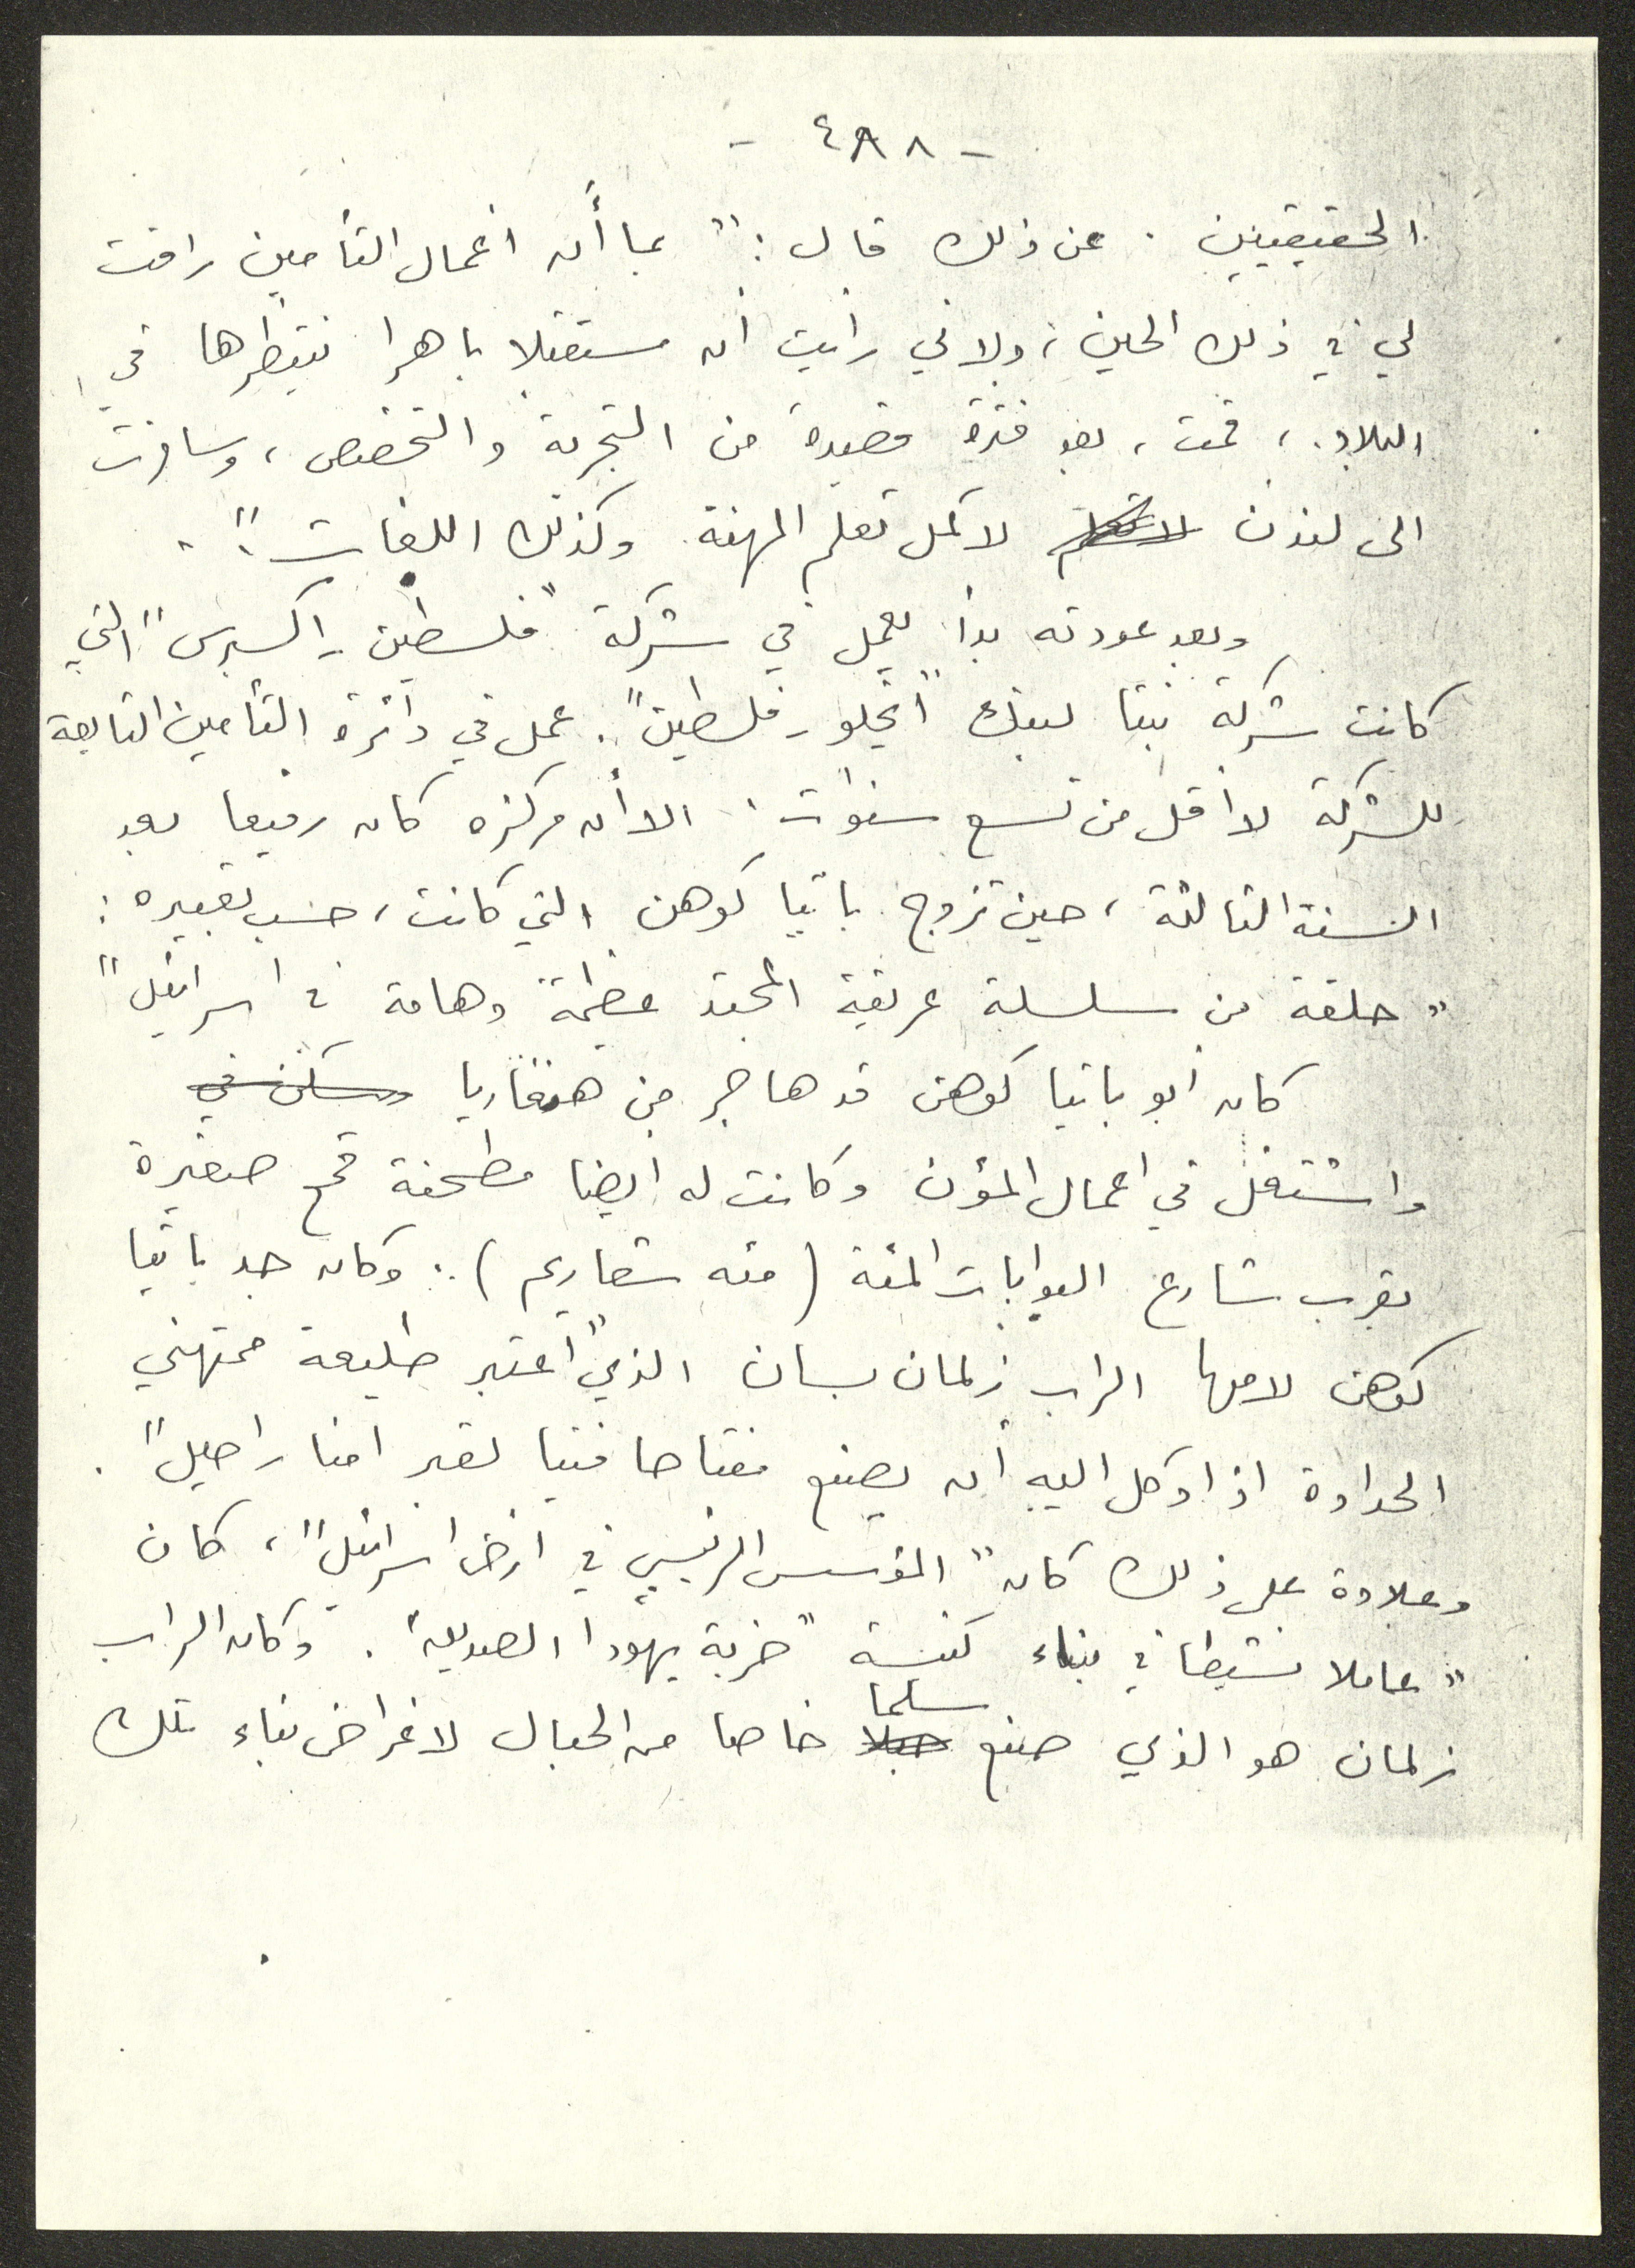 - ٤٩٨ -
الحقيقيين . عن ذلك قال : " بما أن اعمال التأمين راقت
لي في ذلك الحين ، ولاني رأيت أن مستقبلا باهرا ينتظرها في
البلاد ، قمت ، بعد فترة قصيرة من التجربة والتخصص ، وسافرت
الى لندن لاتعلم لاكمل تعلم المهنة وكذلك اللغات " .
وبعد عودته بدأ يعمل في شركة " فلسطين - اكسبرس " التي
كانت شركة بنتا لبنك " أنجلو - فلسطين " . عمل في دائرة التأمين التابعة
للشركة لا أقل من تسع سنوات . الا أن مركزه كان رفيعا بعد
السنة الثالثة ، حين تزوج باتيا كوهن التي كانت ، حسب تعبيره :
" حلقة من سلسلة عريقة المحتد عظيمة وهامة في اسرائيل "
كان أبو باتيا كوهن قد هاجر من هنغاريا وسكن في
واشتغل في اعمال المؤن وكانت له ايضا مطحنة قمح صغيرة
بقرب شارع البوابات المئة ( مئه شعاريم ) . وكان جد باتيا
كوهن لامها الراب زلمان بسان الذي " أعتبر طليعة ممتهني
الحدادة اذ اوكل اليه أن يصنع مفتاحا فنيا لقبر امنا راحيل " .
وعلاوة على ذلك كان " المؤسس الرئيسي في ارض اسرائيل " ، كان
" عاملا نشيطا في بناء كنيسة " خربة يهودا الصديق " . وكان الراب
زلمان هو الذي صنع حبلا سلما خاصا من الحبال لاغراض بناء تلك